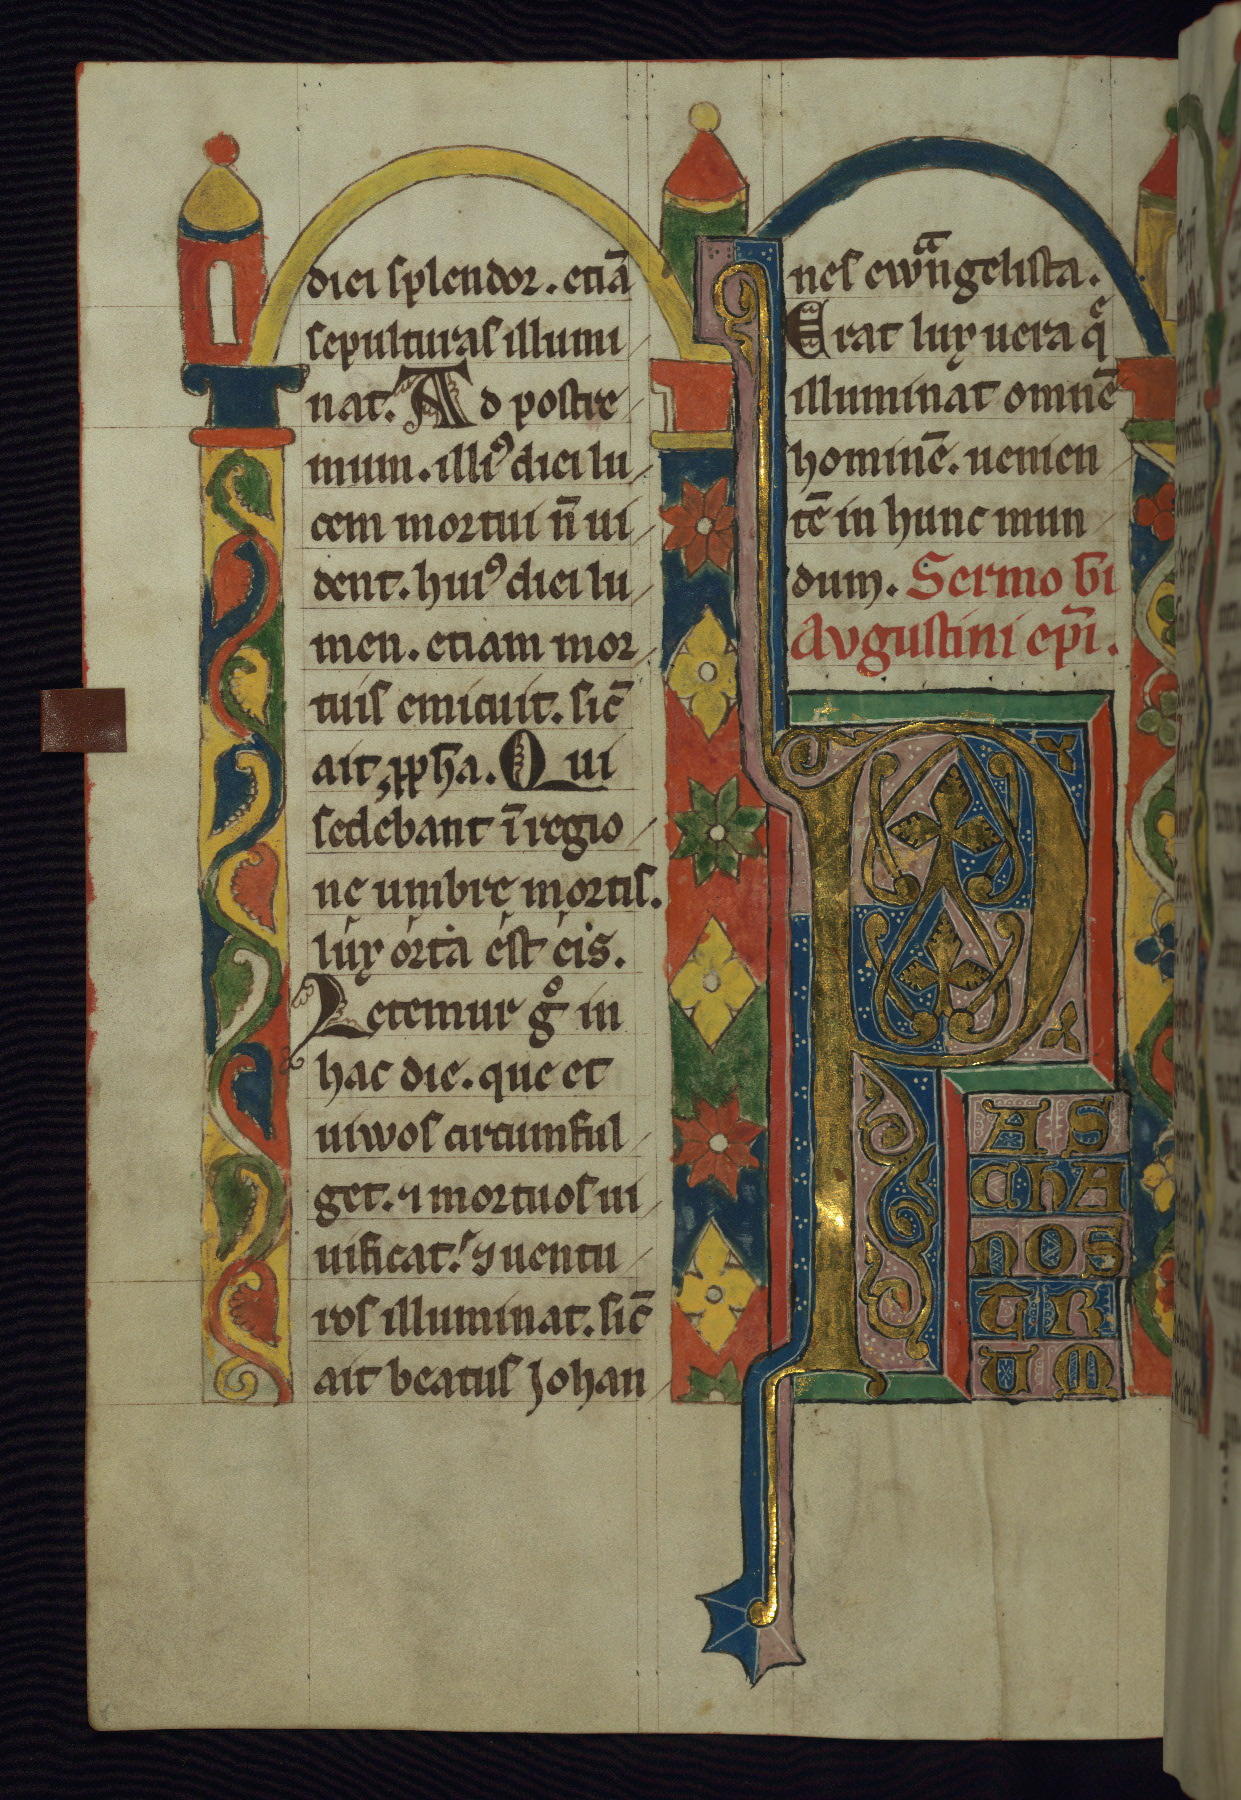 diei splendor. etiā
sepulturas illumi
nat. Ad postre
mum. illiꝰ diei lu
cem mortui n̄ ui
dent. huiꝰ diei lu
men. etiam mor
tuis emicuit. sic̄
ait ꝓph̄a. Qui
sedebant ī regio
ne umbre mortis.
lux orta est eis.
Letemur gͦ in
hac die. que et
uiwos circumful
get. ⁊ mortuos ui
uificat. ⁊ uentu
ros illuminat. sic̄
ait beatus Johan
nes ewāngelista.
Erat lux uera q̄
illuminat omnē
hominē. uenien
tē in hunc mun
dum. Sermo b̄i
Avgustini ep̄i.
P
AS
ChA
NOS
TR
UM